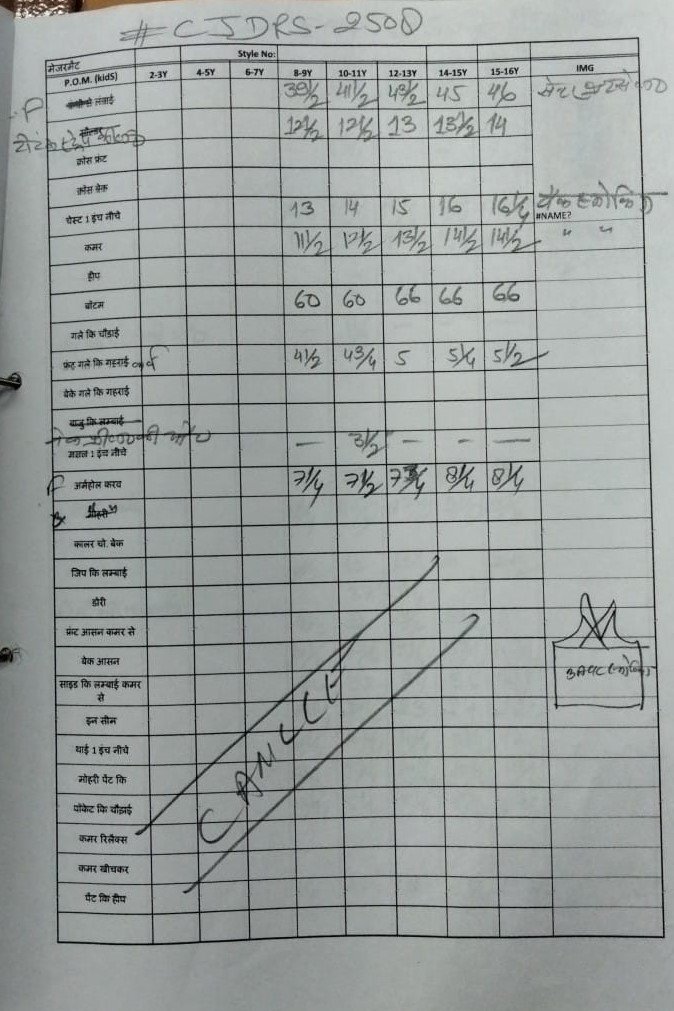 # CJDRS-2508
मेजरमेंट Style No:
P.O.M. (kidS) 2-3Y 4-5Y 6-7Y 8-9Y 10-11Y 12-13Y 14-15Y 15-16Y IMG
F लंबाई 39½ 41½ 43½ 45 46
12½ 12½ 13 13½ 14
क्रोस फ्रंट
क्रोस बेक
चेस्ट 1 इंच नीचे 13 14 15 16 16¼ #NAME?
कमर 11½ 12½ 13½ 14½ 14½ " "
हीप
बॉटम 60 60 66 66 66
गले कि चौडाई
फ्रंट गले कि गहराई कर्व 4½ 4¾ 5 5¼ 5½
बेके गले कि गहराई
बाजु कि लम्बाई
— 3½ — — —
मसल 1 इंच नीचे
F अर्महोल करव 7¼ 7½ 7¾ 8¼ 8¼
मोहरी
कालर चो. बेक
जिप कि लम्बाई
डोरी
फ्रंट आसन कमर से
बेक आसन
साइड कि लम्बाई कमर
से
इन सीम
थाई 1 इंच नीचे
मोहरी पेंट कि
पॉकेट कि चौड़ाई
कमर रिलैक्स
कमर खीचकर
पेंट कि हीप
CANCLE